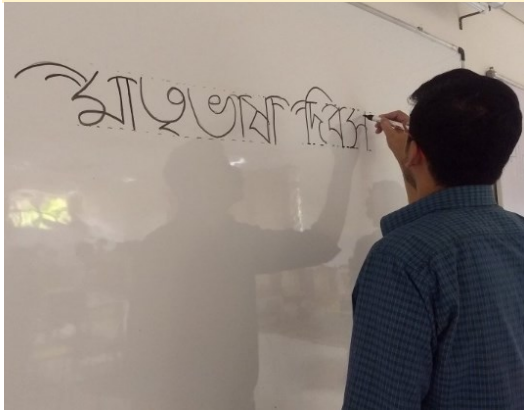 মাতৃভাষা দিবস